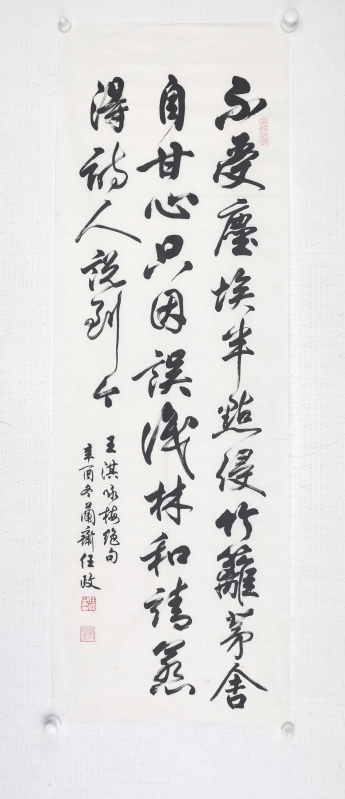 不受塵埃半點侵竹籬茅舍
自甘心只因誤識林和靖惹
得詩人說到今
王淇咏梅绝句
辛酉冬蘭齋任政